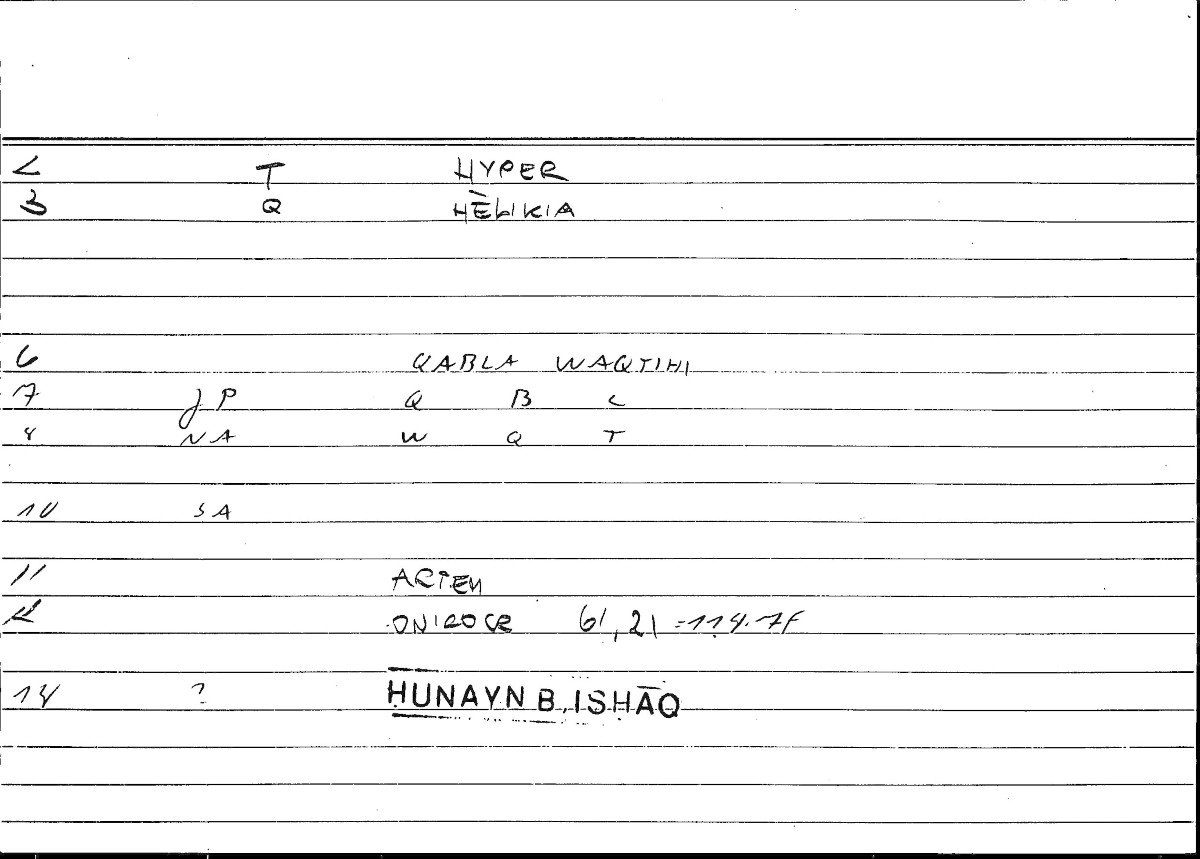 2 T HYPER
3 Q HĒLIKIA
6 QABLA WAQTIHI
7 JP Q B L
8 NA W Q T
10 SA
11 ARTEM
12 ONIROCR 61,21 = 114.7F
14 ? HUNAYN B. ISHĀQ